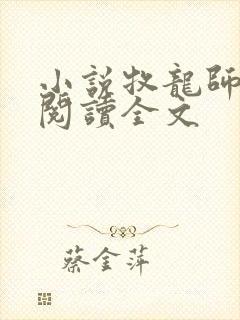 小説牧龍師
閱讀全文
蔡金萍